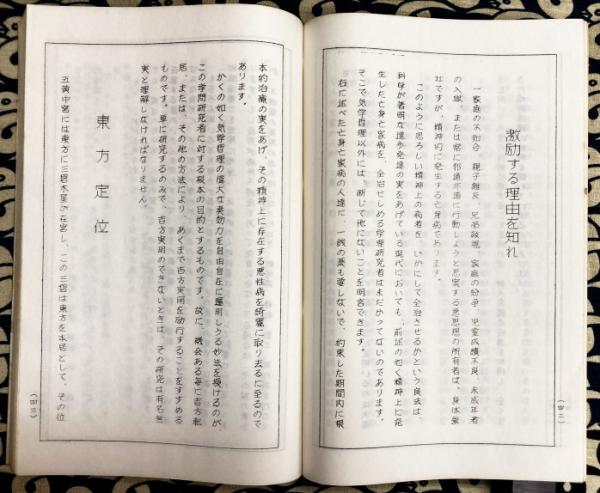 激励する理由を知れ
一家庭の不和合、親子離反、兄弟敵視、家庭の紛争、児童成績不良、未成年者
の入獄、または常に邪道非道に行動しようと思案する悪思想の所有者は、身体
ですが、精神的に発生する亡身病であります。
このように恐ろしい精神上の病者を、いかにして全治させるかという良法は、
科学が著明な進歩発達の実をあげている現代においても、前述の如く精神上に発
生した亡身亡家病を、全治せしめる学術研究者は未だかつてないのであります。
そこで気学哲理以外には、断じて他にないことを明言できます。
右に述べた亡身亡家病の人達に、一銭の薬も要しないで、約束した期間内に根
(四二)
本的治療の実をあげ、その精神上に存在する悪性病を綺麗に取り去るに至るので
あります。
かくの如く気学哲理の偉大な実効力を自由自在に運用しうる妙法を授けるのが
この学問研究者に対する根本の目的とするものです。故に、機会ある毎に吉方転
居、または、その他の方法により、あくまで吉方実用を励行することをすすめる
ものです。単に研究するのみで、吉方実用のできないときは、その研究は有名無
実と理解しなければなりません。
東方定位
五黄中宮には東方に三碧木星が在宮し、この三碧は東方を本居として、その位
(四三)